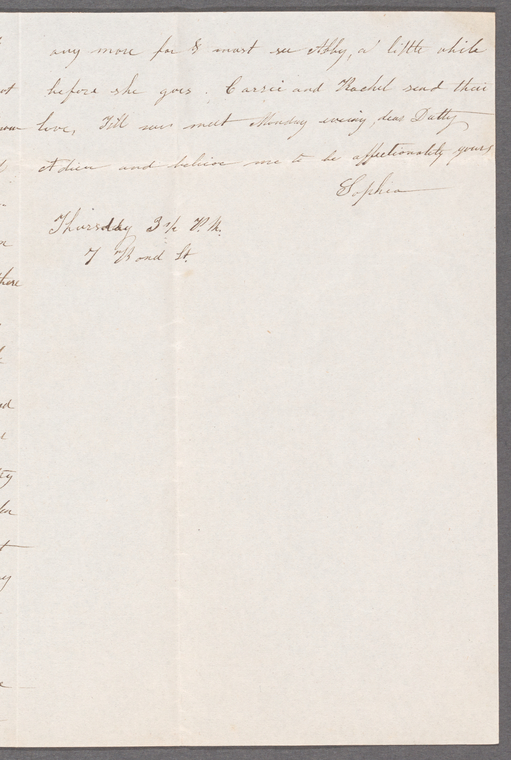 any more for I must see Abby, a little while
before she goes. Carrie and Rachel send their
love, Till we meet Monday evening, dear Datty
Adieu and believe me to be affectionately yours
Sophia
Thursday 3 1/2 P.M.
7 Bond St.